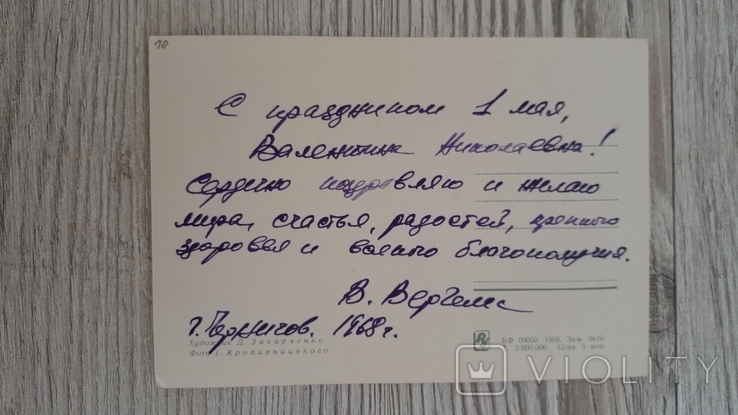 10
С праздником 1 мая,
Валентина Николаевна!
Сердечно поздравляю и желаю
мира, счастья, радостей,
здоровья и всякого благополучия.
В. Вергелис
г. Чернигов. 1968 г.
Художник Д. Захарченко
Фото І. Кропивницького
БФ 1968. Зам.
2.000.000. Ціна 3 коп.
VIOLITY